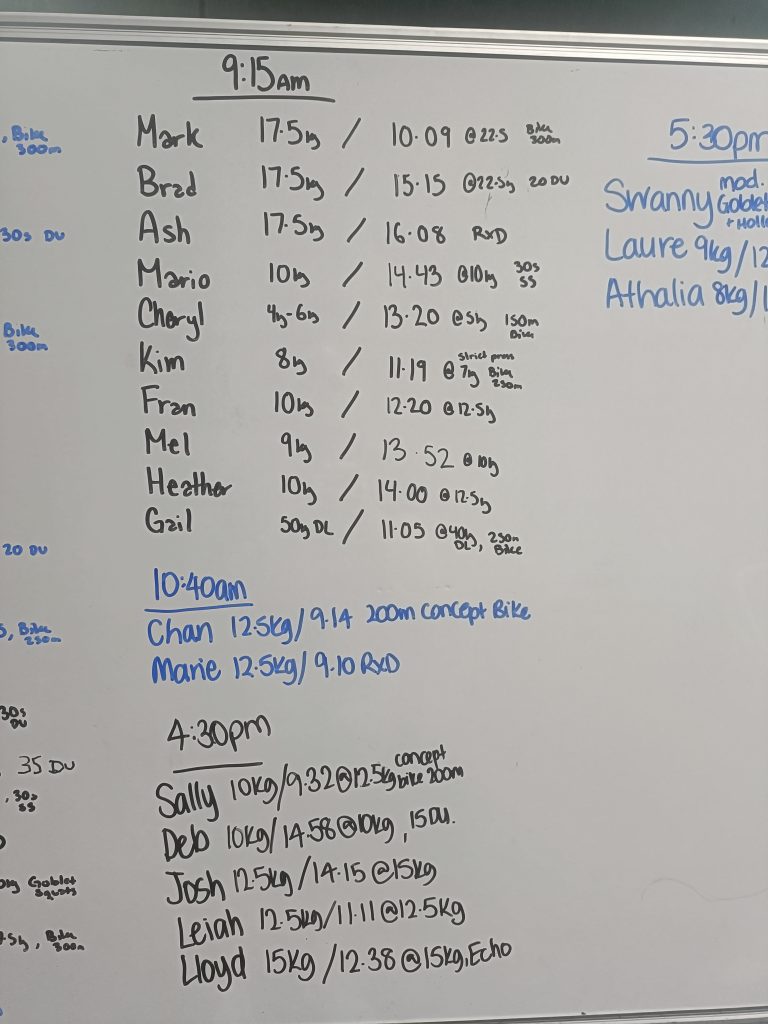 9:15AM
Mark 17.5kg / 10.09 @22.5 Bike 300m
Brad 17.5kg / 15.15 @22.5kg 20 DU
Ash 17.5kg / 16.08 RXD
Mario 10kg / 14.43 @10kg 30s SS
Cheryl 4kg-6kg / 13.20 @5kg 150m Bike
Kim 8kg / 11.19 @ 7kg strict press Bike 250m
Fran 10kg / 12.20 @12.5kg
Mel 9kg / 13.52 @10kg
Heather 10kg / 14.00 @12.5kg
Gail 50kg DL / 11.05 @40kg DL, 250m Bike
10:40am
Chan 12.5kg/9.14 200m Concept Bike
Marie 12.5kg/9.10 RXD
4:30pm
Sally 10kg/9.32@12.5kg concept bike 200m
Deb 10kg/14.58@10kg, 15DU.
Josh 12.5kg/14.15@15kg
Leiah 12.5kg/11.11@12.5kg
Lloyd 15kg/12.38@15kg, Echo
5:30pm
Swanny mod. Goblet
Laure 9kg/12
Athalia 8kg/1
, Bike 300m
30s DU
Bike 300m
20 DU
, Bike 250m
30s DU
35 DU
, 30s SS
Goblet Squats
, Bike 300m